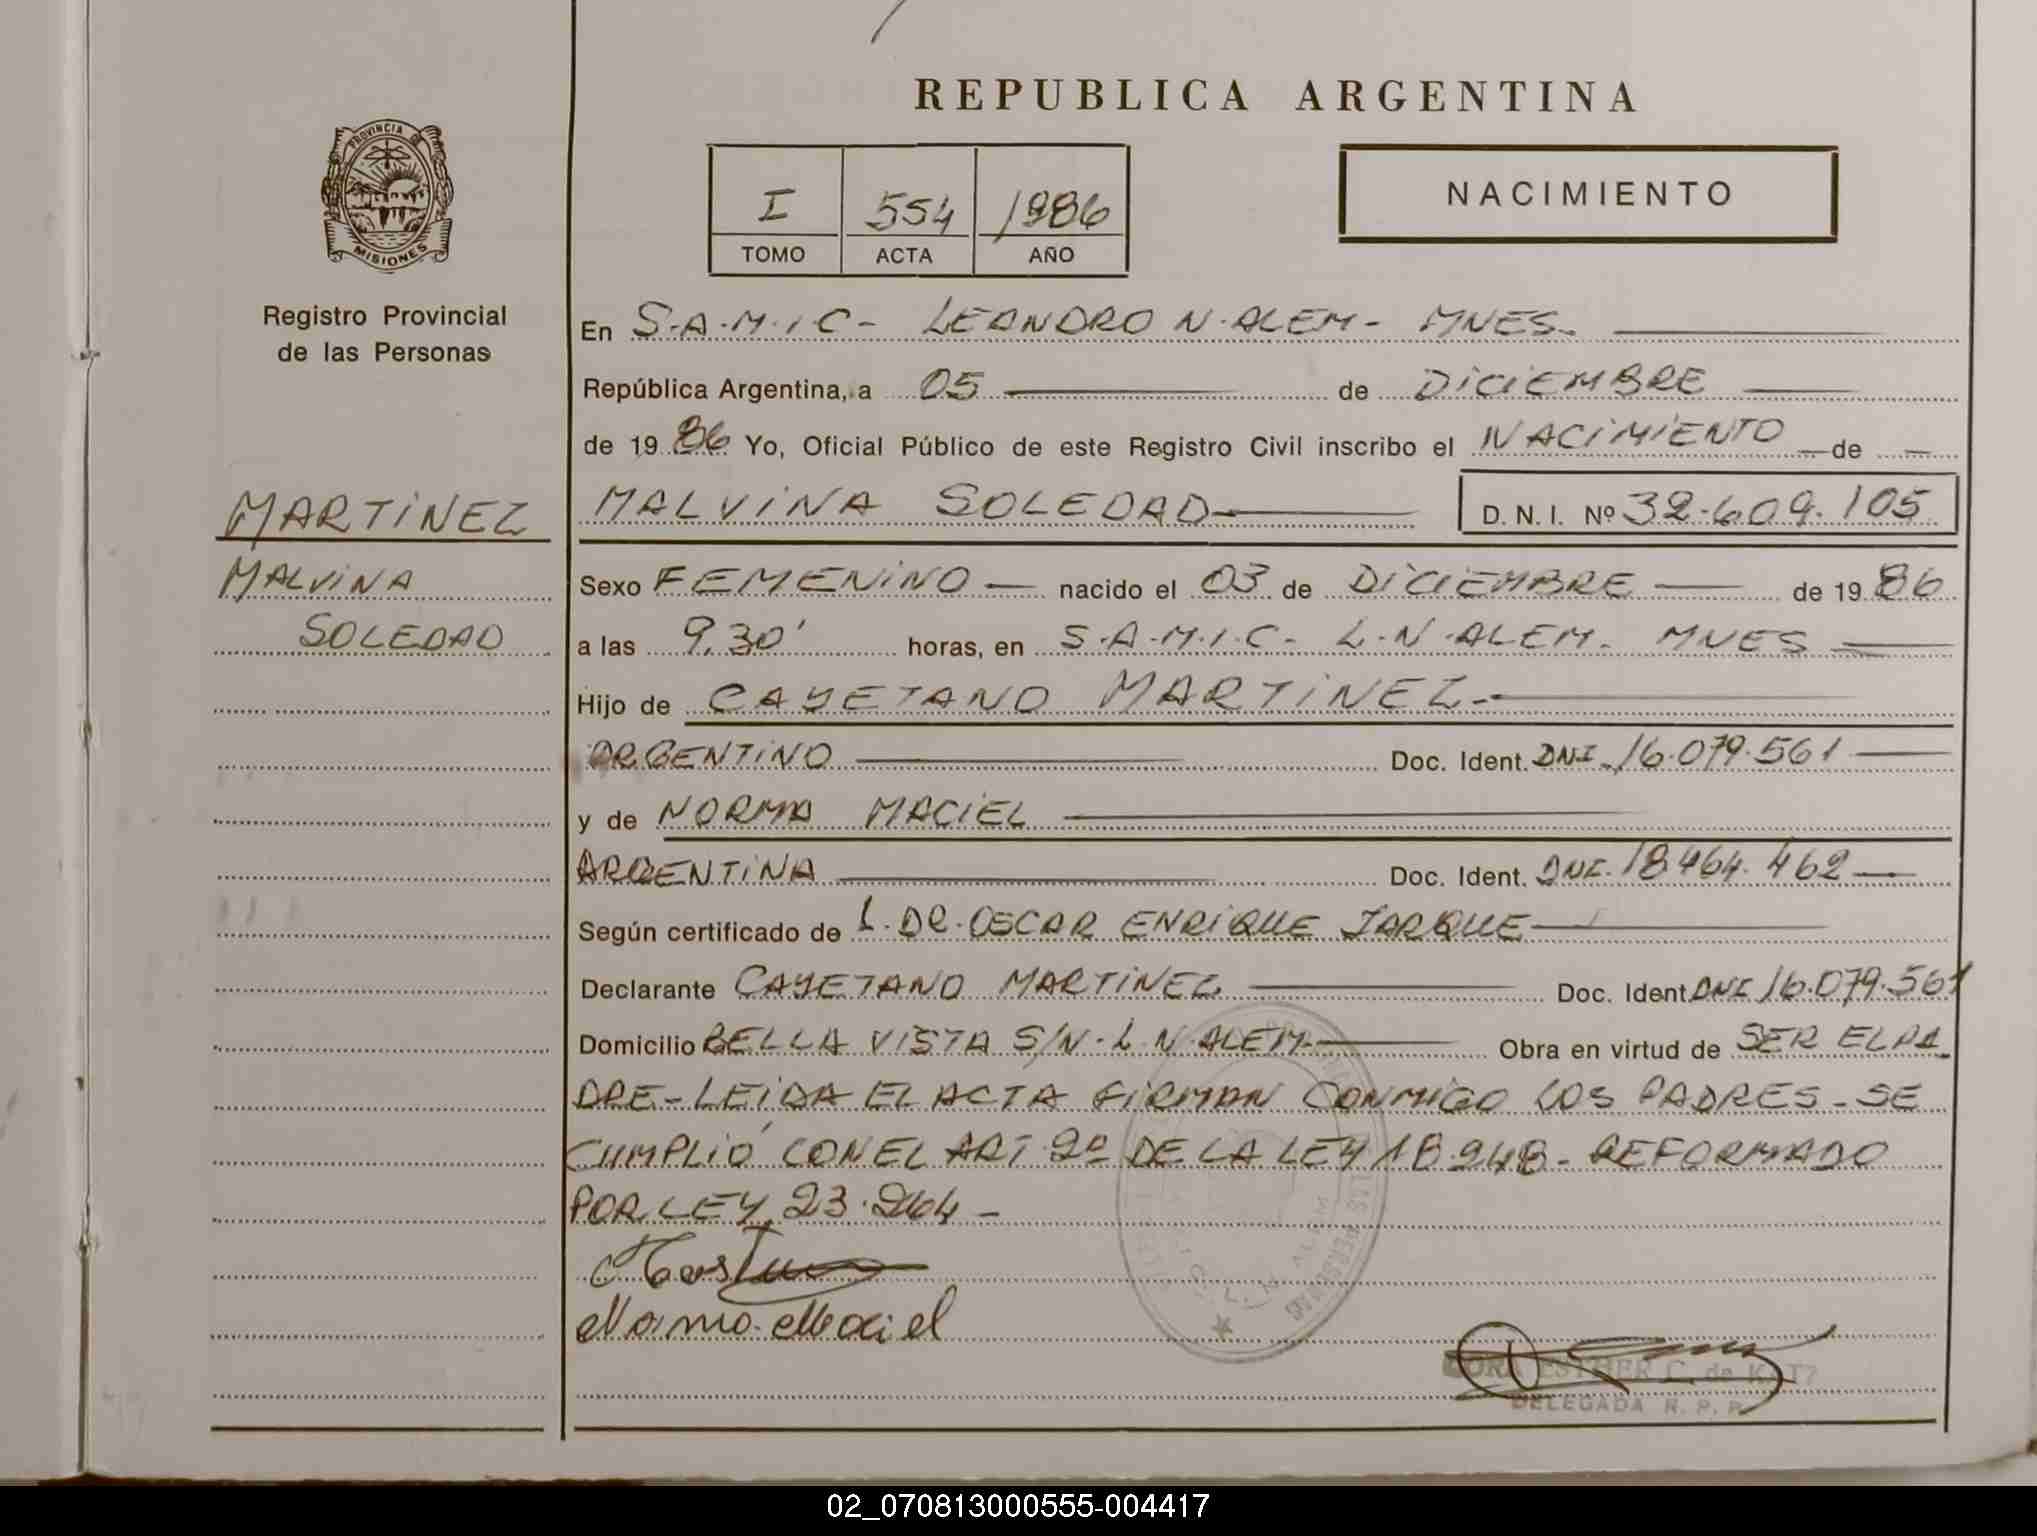 REPUBLICA ARGENTINA
PROVINCIA DE
MISIONES
Registro Provincial
de las Personas
I 554 1986
TOMO ACTA AÑO
NACIMIENTO
En S.A.M.I.C- LEANDRO N. ALEM- MNES-
República Argentina, a 05 de DICIEMBRE
de 1986 Yo, Oficial Público de este Registro Civil inscribo el NACIMIENTO de
MALVINA SOLEDAD
D. N. I. Nº 32.609.105
MARTINEZ
MALVINA
SOLEDAD
Sexo FEMENINO nacido el 03 de DICIEMBRE de 1986
a las 9,30' horas, en S.A.M.I.C- L.N.ALEM. MNES
Hijo de CAYETANO MARTINEZ-
ARGENTINO Doc. Ident. DNI 16.079.561
y de NORMA MACIEL
ARGENTINA Doc. Ident. DNI. 18464.462
Según certificado de L. DR. OSCAR ENRIQUE JARQUE
Declarante CAYETANO MARTINEZ Doc. Ident DNI 16.079.561
Domicilio BELLA VISTA S/N. L.N.ALEM- Obra en virtud de SER EL PA
DRE-LEIDA EL ACTA FIRMAN CONMIGO LOS PADRES-SE
CUMPLIO CON EL ART 2º DE LA LEY 18.248- REFORMADO
POR LEY 23.264-
Norma Maciel
ESTHER C. de
DELEGADA R. P. P.
02_070813000555-004417